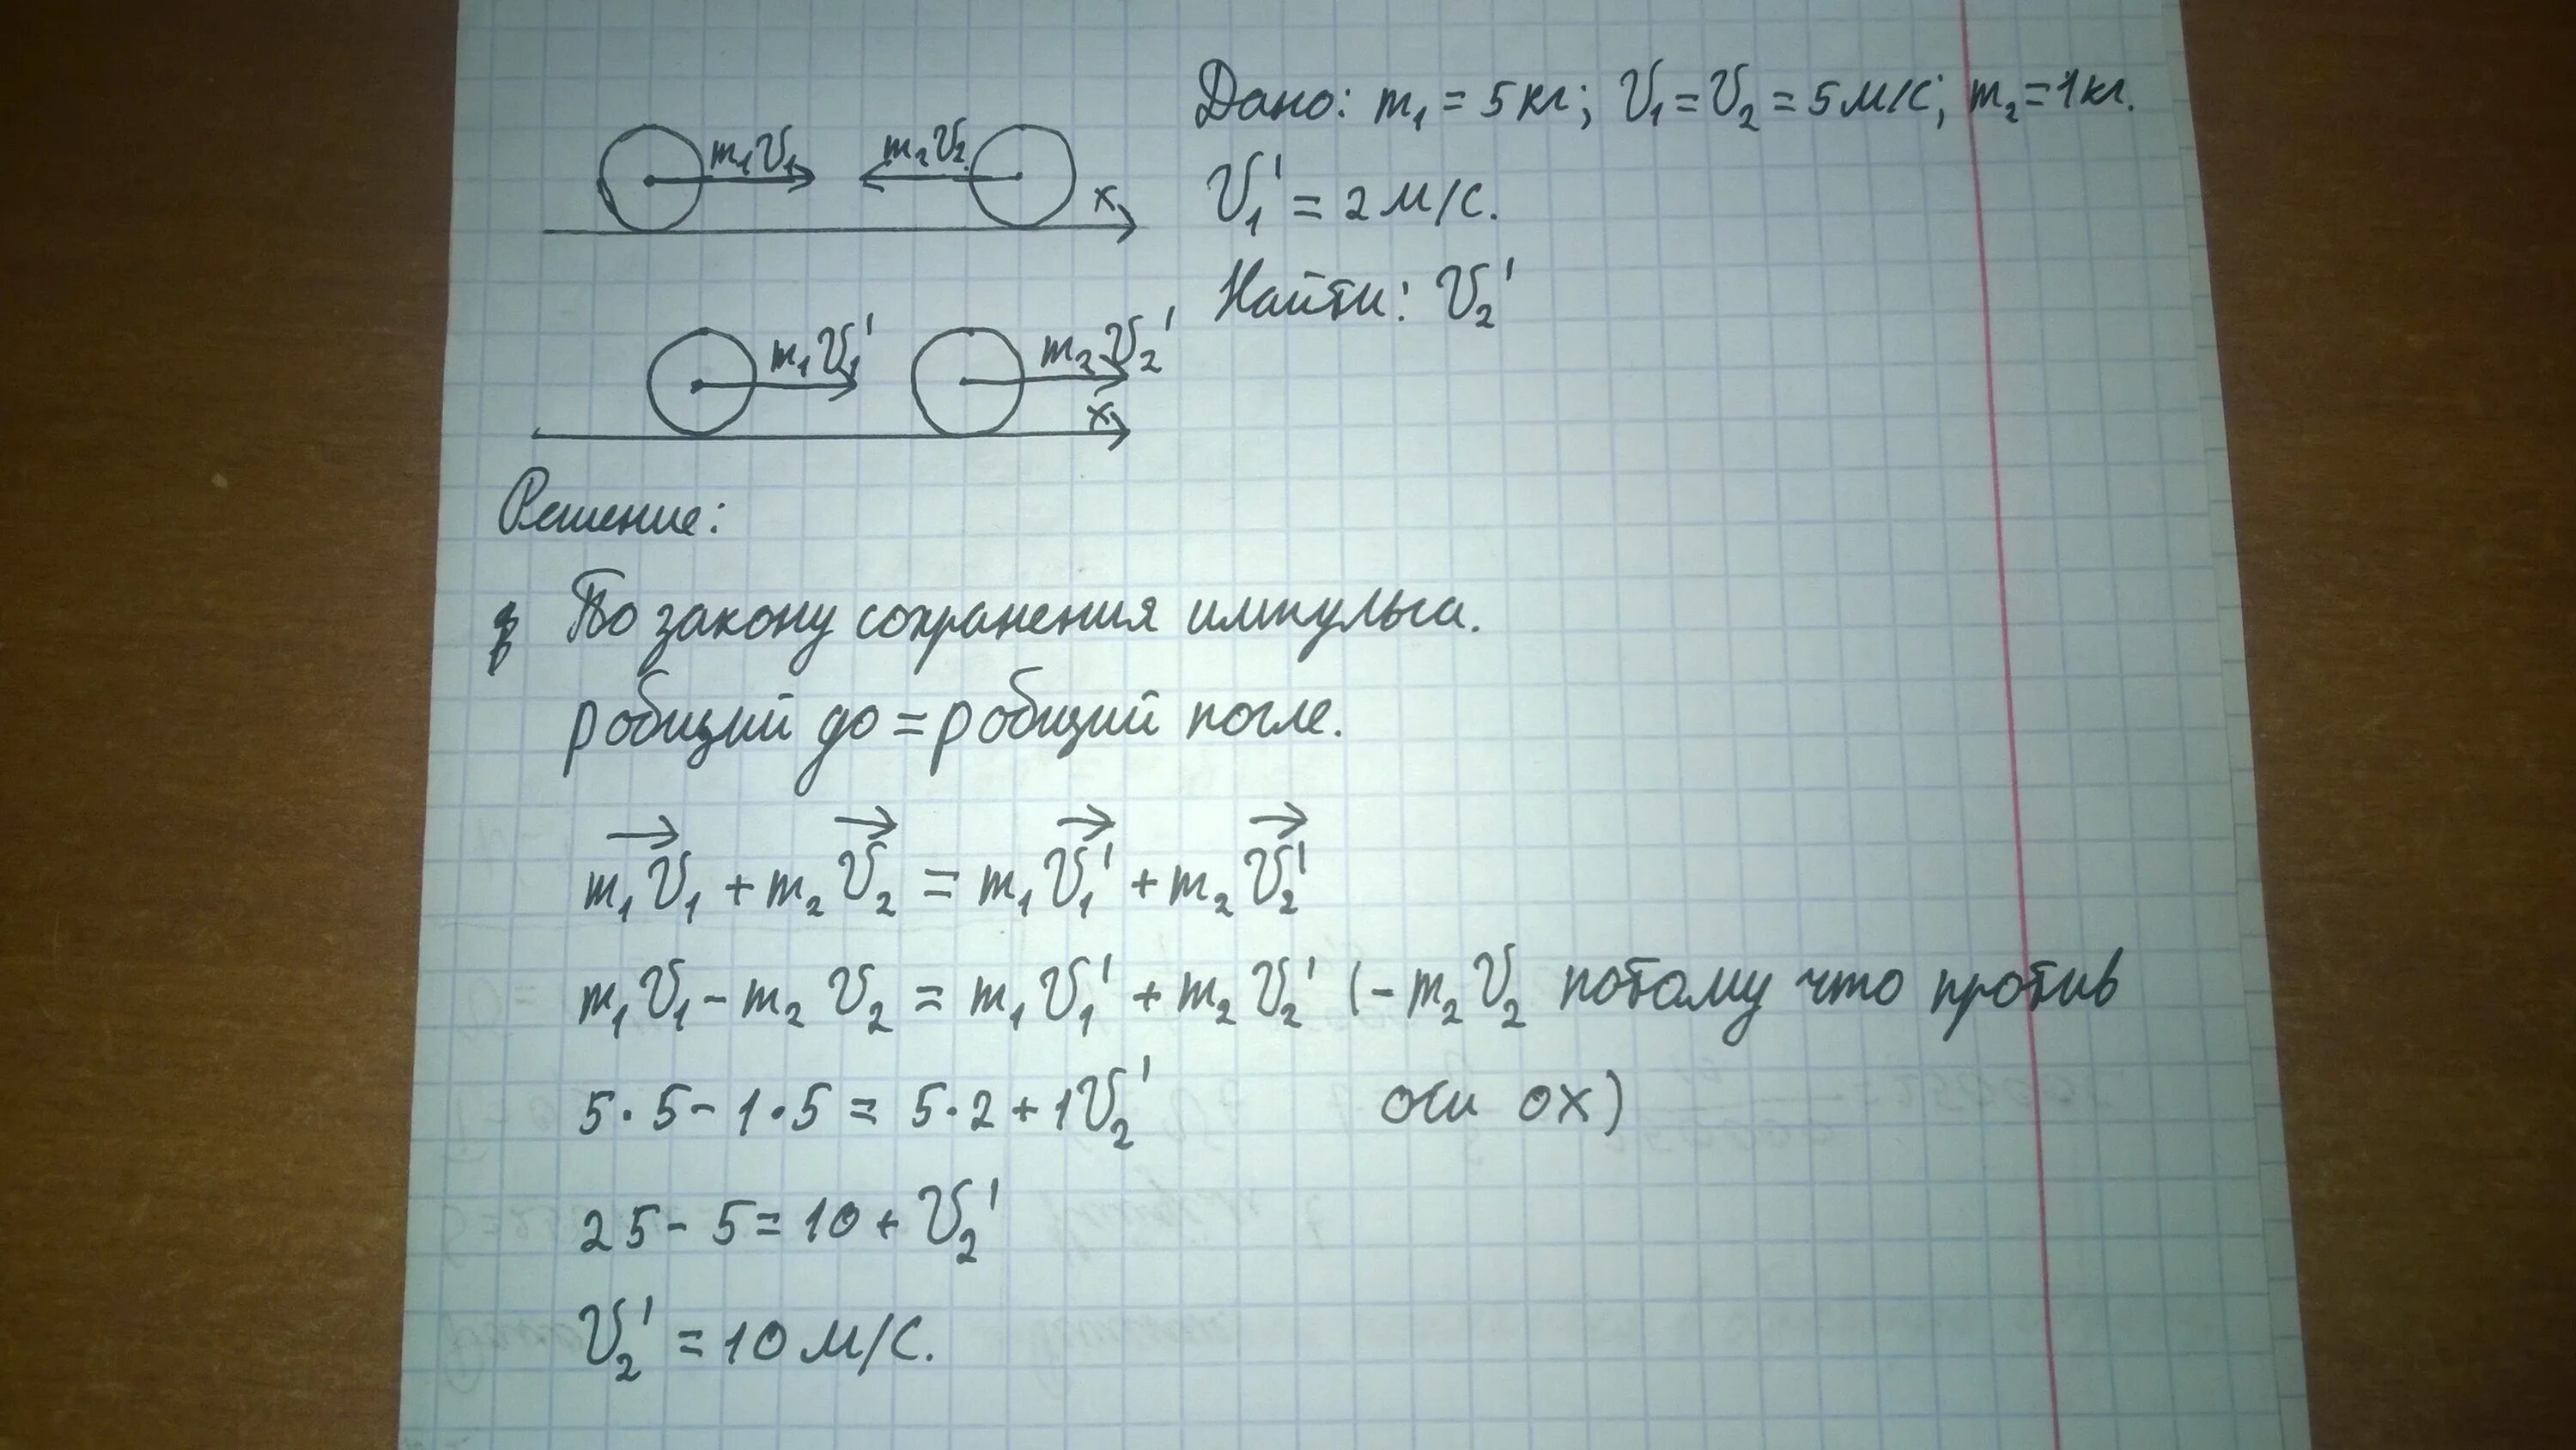 m₁V₁ m₂V₂
x
Дано: m₁ = 5 кг; V₁ = V₂ = 5 м/с; m₂ = 1 кг.
V₁' = 2 м/с.
Найти: V₂'
m₁V₁' m₂V₂'
x
Решение:
По закону сохранения импульса.
p общий до = p общий после.
m₁V₁ + m₂V₂ = m₁V₁' + m₂V₂'
m₁V₁ - m₂V₂ = m₁V₁' + m₂V₂' (- m₂V₂ потому что против
оси ox)
5·5 - 1·5 = 5·2 + 1V₂'
25 - 5 = 10 + V₂'
V₂' = 10 м/с.